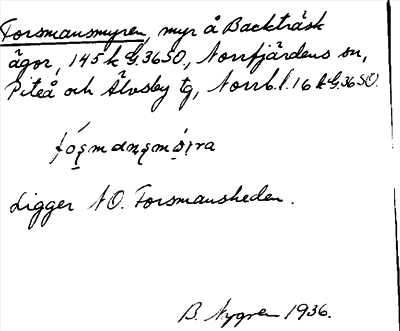 Forsmansmyren, myr å Backträsk
ägor, 145 k G.36SO., Norrfjärdens sn,
Piteå och Älvsby tg, Norrb.l. 16 k G.36SO.
Ligger NO. Forsmansheden.
B. Nygren 1936.